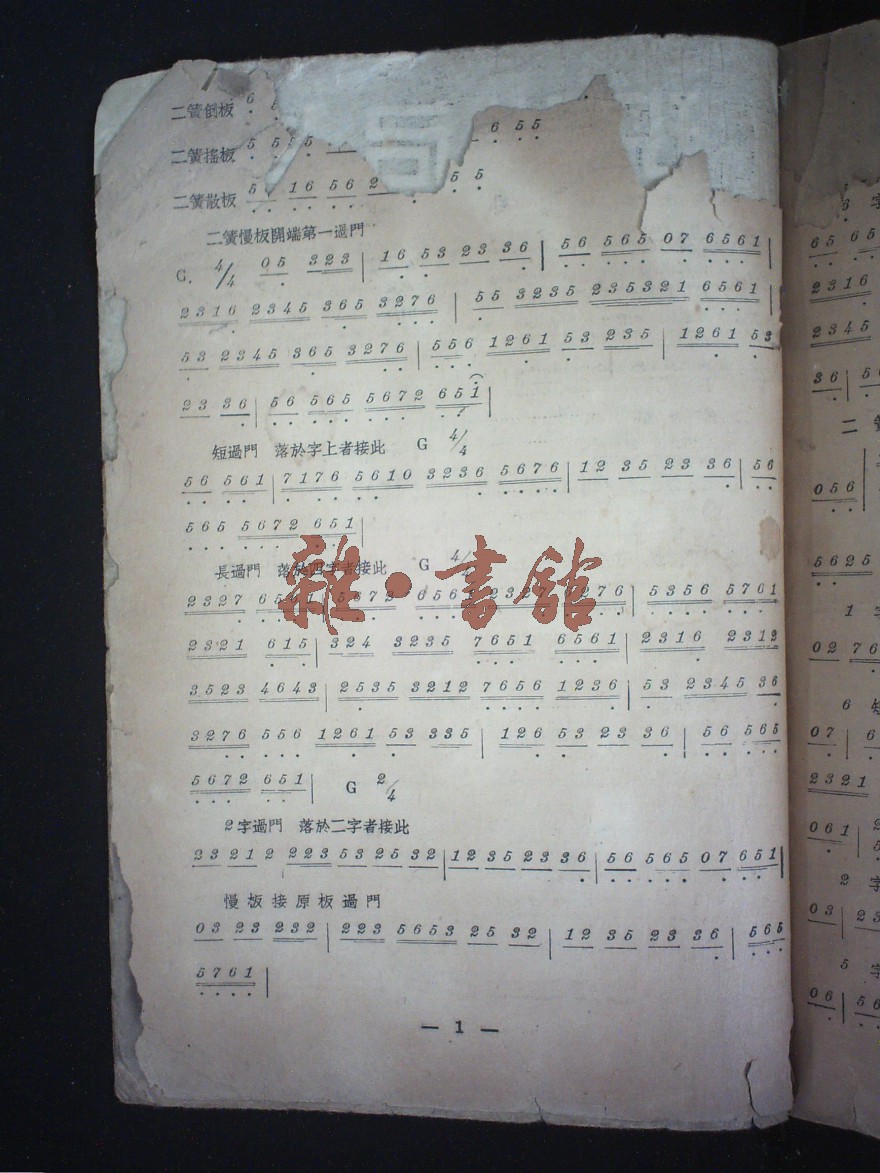 二簧倒板 6
二簧搖板 5 5 5 5 6 5 5
二簧散板 5 1 6 5 6 2 5 5
二簧慢板開端第一過門
G. 4/4 0 5 3 2 3 | 1 6 5 3 2 3 3 6 | 5 6 5 6 5 0 7 6 5 6 1 |
2 3 1 6 2 3 4 5 3 6 5 3 2 7 6 | 5 5 3 2 3 5 2 3 5 3 2 1 6 5 6 1 |
5 3 2 3 4 5 3 6 5 3 2 7 6 | 5 5 6 1 2 6 1 5 3 2 3 5 | 1 2 6 1 5 3
2 3 3 6 | 5 6 5 6 5 5 6 7 2 6 5 1 |
短過門 落於字上者接此 G 4/4
5 6 5 6 1 | 7 1 7 6 5 6 1 0 3 2 3 6 5 6 7 6 | 1 2 3 5 2 3 3 6 | 5 6
5 6 5 5 6 7 2 6 5 1 |
長過門 落於四字者接此 G 4/4
2 3 2 7 6 5 6 1 5 6 7 2 6 5 6 1 2 3 2 7 6 2 7 6 | 5 3 5 6 5 7 6 1
2 3 2 1 6 1 5 | 3 2 4 3 2 3 5 7 6 5 1 6 5 6 1 | 2 3 1 6 2 3 1 2
3 5 2 3 4 6 4 3 | 2 5 3 5 3 2 1 2 7 6 5 6 1 2 3 6 | 5 3 2 3 4 5 3 6
3 2 7 6 5 5 6 1 2 6 1 5 3 3 3 5 | 1 2 6 5 3 2 3 3 6 | 5 6 5 6 5
5 6 7 2 6 5 1 | G 2/4
2字過門 落於二字者接此
2 3 2 1 2 2 2 3 5 3 2 5 3 2 | 1 2 3 5 2 3 3 6 | 5 6 5 6 5 0 7 6 5 1 |
慢板接原板過門
0 3 2 3 2 3 2 | 2 2 3 5 6 5 3 2 5 3 2 | 1 2 3 5 2 3 3 6 | 5 6 5
5 7 6 1 |
— 1 —
雜·書舘
字
6 5 6 5
2 3 1 6
2 3 4 5
3 6 |
二簧
0 5 6
5 6 2 5
1 字
0 2 7 6
6 短
0 7 | 6
2 3 2 1
0 6 1
2 字
0 3 | 2 3
5 字
0 6 | 5